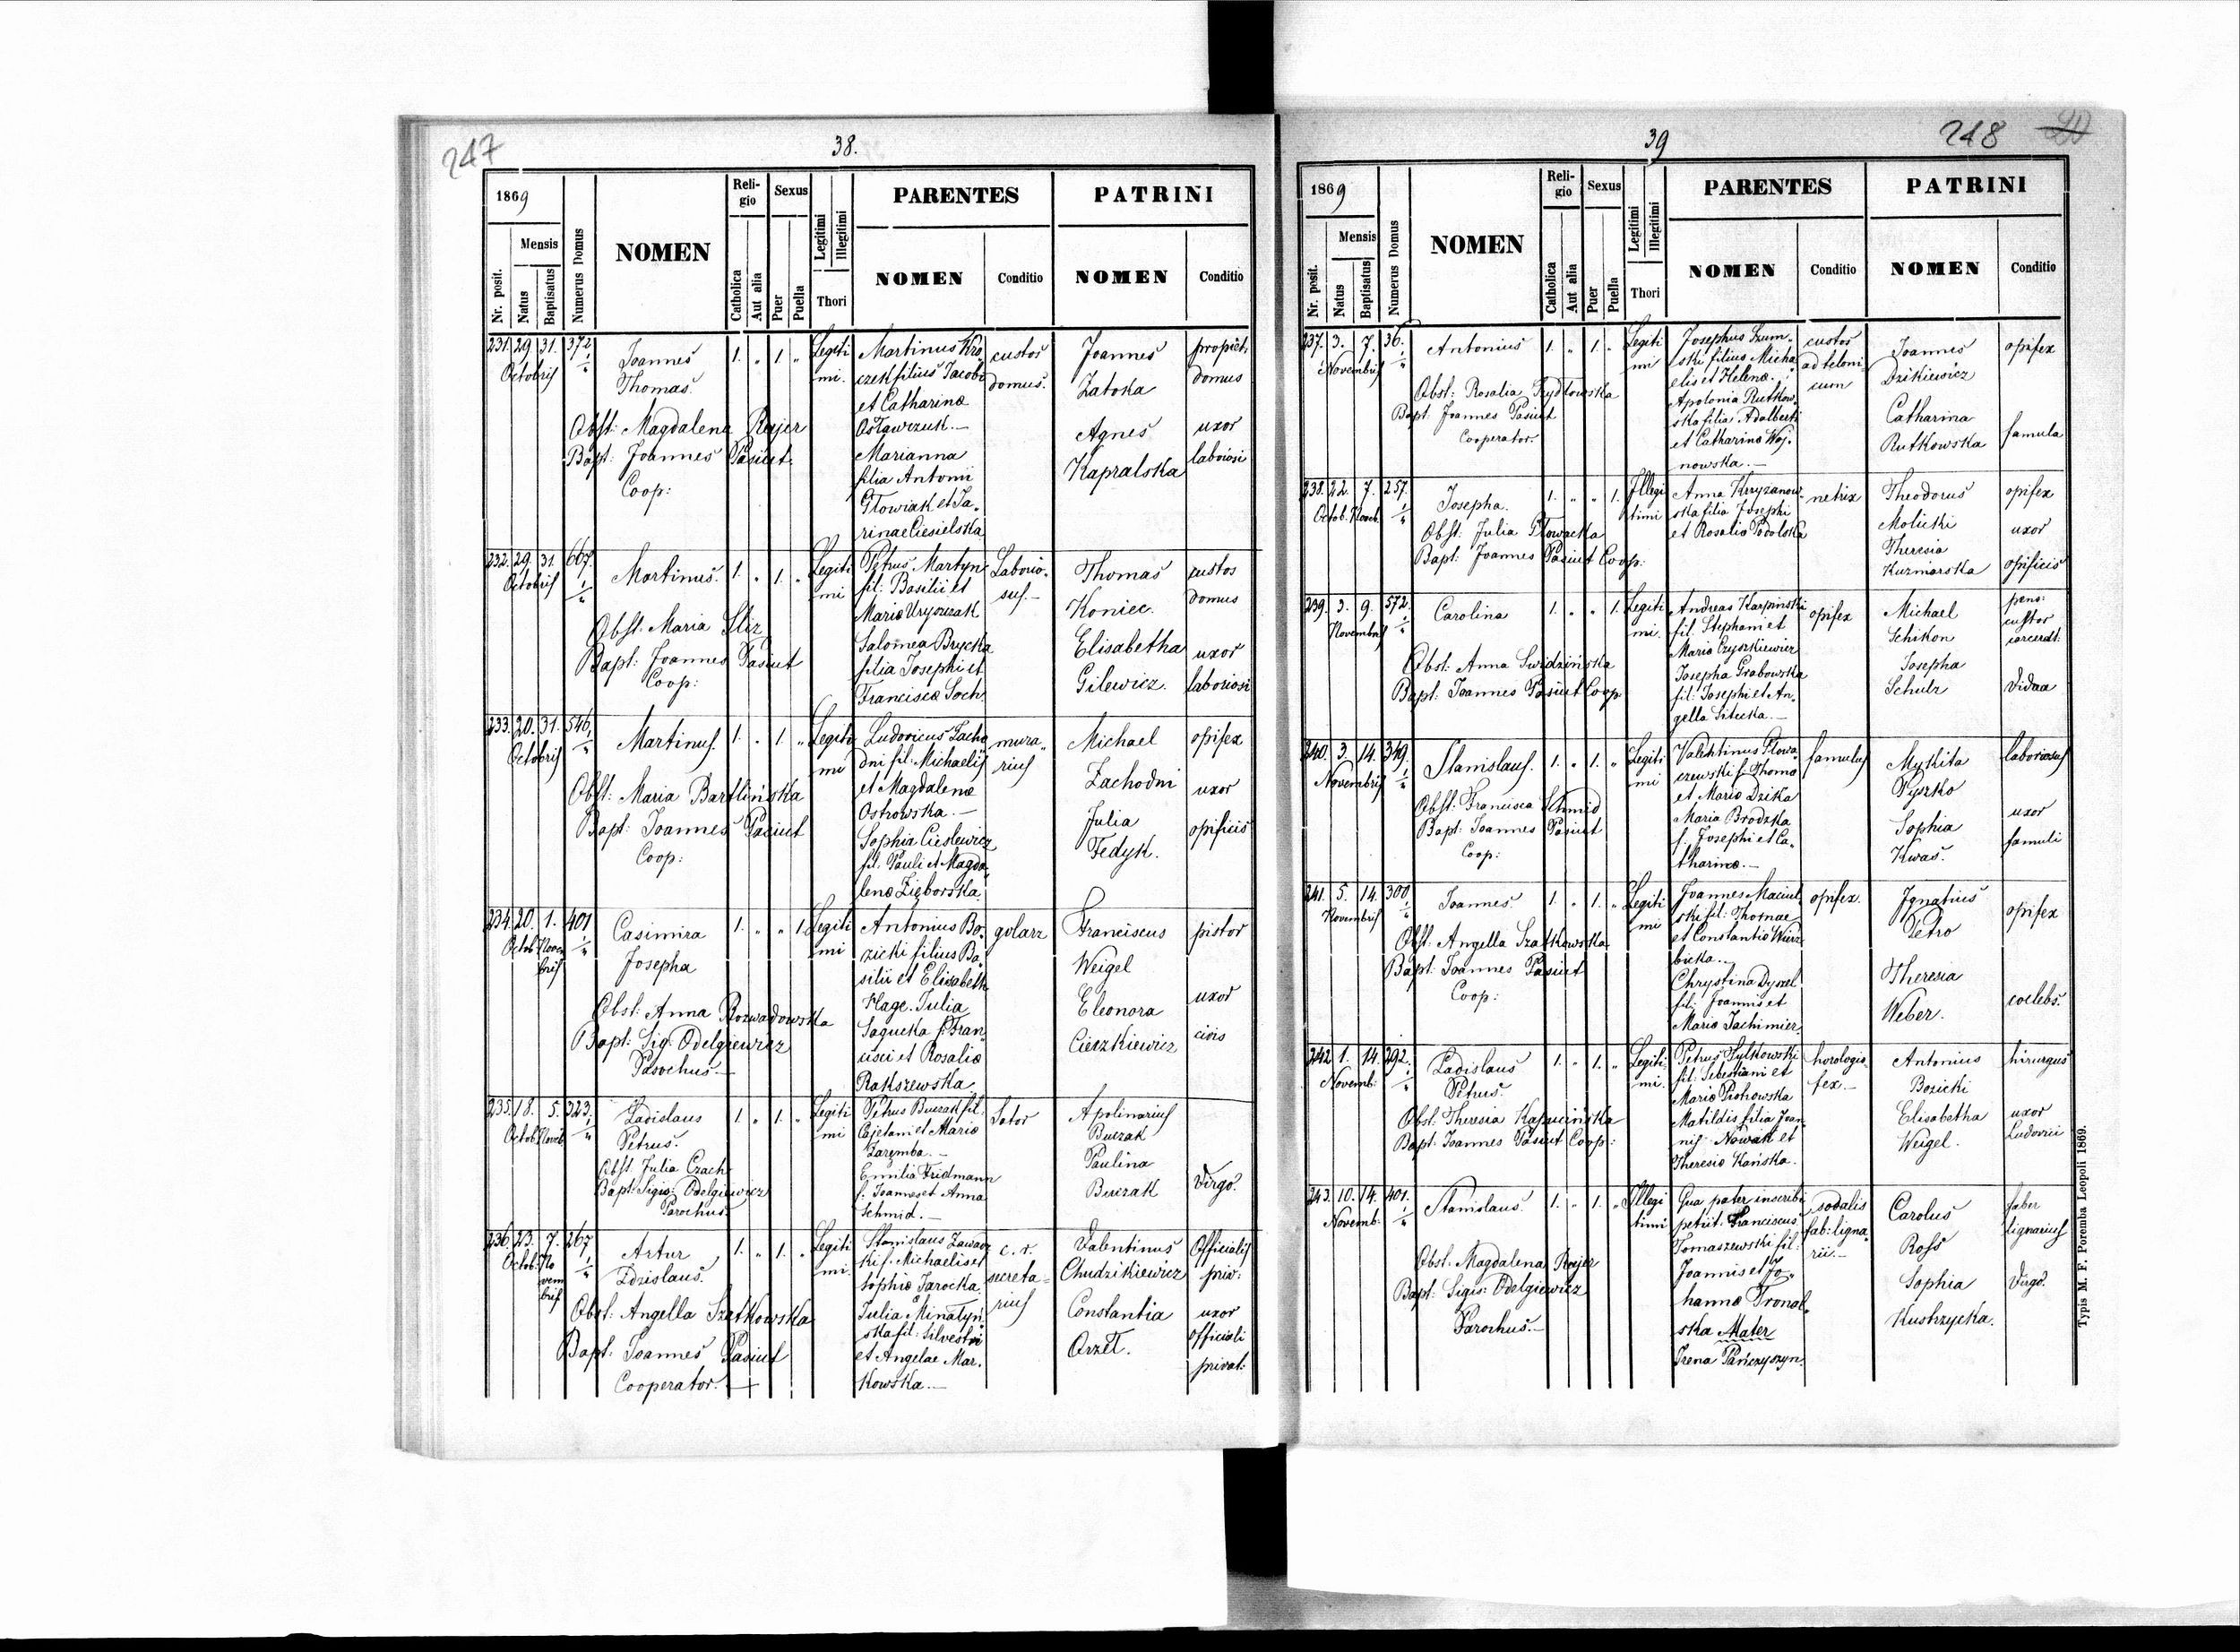 247
38.
1869
Mensis
Nr. posit.
Natus
Baptisatus
Numerus Domus
NOMEN
Reli-
gio
Catholica
Aut alia
Sexus
Puer
Puella
Legitimi
Illegitimi
Thori
PARENTES
NOMEN
Conditio
PATRINI
NOMEN
Conditio
231. 29 31. 372
Octobris
Joannes
Thomas.
Obst: Magdalena Rejer
Bapt: Joannes Pasiut.
Coop:
1. " 1. "
Legiti
mi.
Martinus Kro
czek filius Jacobi
et Catharina
Marianna
filia Antonii
Głowiak et Ja„
rinae Ciesielska
custos
domus.
Joannes
Zatoka
Agnes
Kapralska
propiet.
domus
uxor
laboiosi
232. 29. 31. 667.
Octobris
Martinus.
Obst: Maria Sliz
Bapt: Joannes Pasiut
Coop:
1. " 1. "
Legiti
mi
Petrus Martyn
fil: Basilii et
Maria
Salomea Brycka
filia Josephi et
Francisca Soch.
Laborio„
sus.—
Thomas
Koniec.
Elisabetha
Gilewicz.
custos
domus
uxor
laboriosi
233. 20. 31. 546
Octobris
Martinus.
Obst: Maria Bartlińska
Bapt: Joannes Pasiut
Coop:
1. " 1. "
Legiti
mi
Ludovicus Zacho
dni fil: Michaelis
et Magdalena
Ostrowska.—
Sophia Cieslewicz
fil: Pauli et Magda„
lena Zięborska.
mura„
rius
Michael
Zachodni
Julia
Fedyk.
opifex
uxor
opificis
234. 20. 1. 401
Octob. Novem
bris
Casimira
Josepha
Obst: Anna Rozwadowska
Bapt: Sig: Odelgiewicz
Parochus.—
1. " " 1
Legiti
mi
Antonius Bo„
zicki filius Ba„
silii et Elisabeth
Hage. Julia
Sagucka f: Fran„
cisci et Rosalia
Rakszewska
golarz
Franciscus
Weigel
Eleonora
Cieszkiewicz
pistor
uxor
civis
235. 18. 5. 323.
Octob. Noveb
Ladislaus
Petrus.
Obst: Julia Czach
Bapt: Sigis: Odelgiewicz
Parochus
1. " 1. "
Legiti
mi
Petrus Buczak fil:
Cajetani et Maria
Zaremba.—
Emilia Fridmann
f: Joannes et Anna
Schmid.—
Sator
Apolinarius
Buczak
Paulina
Buczak
Virgo.
236. 23. 7. 267
Octob. No
vem
bris
Artur
Zdzislaus.
Obst: Angella Szatkowska
Bapt: Joannes Pasiut
Cooperator.
1. " 1. "
Legiti
mi.
Stanislaus Zawadz
ki f. Michaelis et
Sophia Jarocka.
Julia Minatyń„
ska fil: Silvestri
et Angelae Mar„
kowska.—
c. r.
secreta=
rius
Valentinus
Chudzikiewicz
Constantia
Orzeł.
Officialis
priv:
uxor
officiali
privat:
39
248
20
1869
Mensis
Nr. posit.
Natus
Baptisatus
Numerus Domus
NOMEN
Reli-
gio
Catholica
Aut alia
Sexus
Puer
Puella
Legitimi
Illegitimi
Thori
PARENTES
NOMEN
Conditio
PATRINI
NOMEN
Conditio
237. 3. 7. 36.
Novembris
Antonius
Obst: Rosalia Frydlowska
Bapt: Joannes Pasiut
Cooperator
1. " 1. "
Legiti
mi
Josephus Szum„
ski filius Micha
elis et Helena.
Apolonia Rutkow„
ska filia Adalberti
et Catharina Woj„
nowska.—
custos
ad teloni„
cum
Joannes
Dzikiewicz
Catharina
Rutkowska
opifex
famula
238. 22. 7. 257.
Octob. Noveb.
Josepha.
Obst: Julia Głowacka
Bapt: Joannes Pasiut Coop:
1. " " 1.
Illegi
timi
Anna Krzyzanow„
ska filia Josephi
et Rosalia Podolska
netrix
Theodorus
Molicki
Theresia
Kuzniarska
opifex
uxor
opificis
239. 3. 9. 572.
Novembris
Carolina
Obst: Anna Swidzińska
Bapt: Joannes Pasiut Coop
1. " " 1.
Legiti
mi.
Andreas Karpinski
fil: Stephani et
Maria Czyszkiewicz
Josepha Grabowska
fil: Josephi et An„
gella Sitecka.—
opifex
Michael
Schikon
Josepha
Schulz
custor
Vidua
240. 3. 14. 349.
Novembris
Stanislaus.
Obst: Francisca Schmid
Bapt: Joannes Pasiut
Coop:
1. " 1. "
Legiti
mi
Valentinus Głowa„
czewski f: Thoma
et Maria Dzika
Maria Brodzka
f. Josephi et Ca„
tharina.—
famulus
Mykita
Pyszko
Sophia
Kwas.
laboriosus
uxor
famuli
241. 5. 14. 300
Novembris
Joannes
Obst: Angella Szatkowska
Bapt: Joannes Pasiut
Coop:
1. " 1. "
Legiti
mi
Joannes Maciul
ski fil: Thomae
et Constantia Wierz
bicka.—
Chrystina Dyszel
fil: Joannis et
Maria Jachimiez
opifex.
Ignatius
Petro
Theresia
Weber.
opifex
coelebs.
242. 1. 14 292.
Novemb:
Ladislaus
Petrus.
Obst: Theresia Kapucińska
Bapt: Joannes Pasiut Coop:
1. " 1. "
Legiti
mi.
Petrus Sylkowski
fil: Sebestiani et
Maria Piohowska
Matildis filia Joan„
nis Nowak et
Theresia Kańska.
horologio
fex.—
Antonius
Bozicki
Elisabetha
Weigel.
hirurgus
uxor
Ludovici
243. 10. 14. 401.
Novemb.
Stanislaus.
Obst: Magdalena Rejer
Bapt: Sigis: Odelgiewicz
Parochus.—
1. " 1. "
Illegi
timi
Qua pater inscribi
petiit Franciscus
Tomaszewski fil:
Joannis et Jo„
hanna Tronol„
ska Mater
Irena Pańczyszyn.
sodalis
fab: ligna„
rii.—
Carolus
Ross
Sophia
Kustrzycka.
faber
lignarius
Virgo.
Typis M. F. Poremba Leopoli 1869.